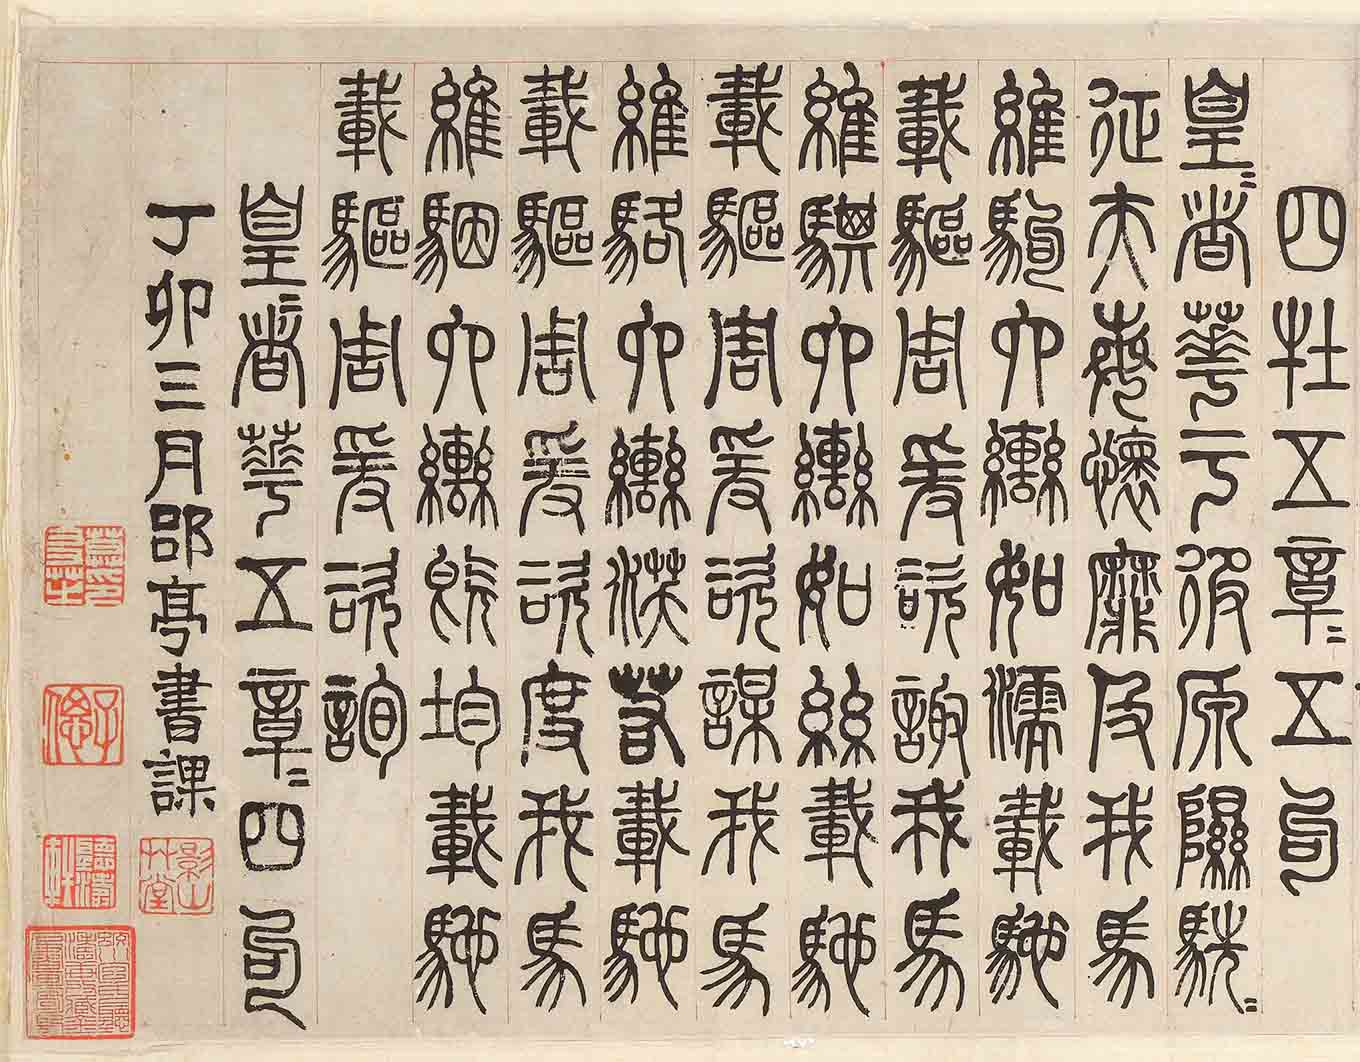 四牡五章〻五句
皇〻者華于彼原隰駪〻
征夫每懷靡及我馬
維駒六轡如濡載馳
載驅周爰咨諏我馬
維騏六轡如絲載馳
載驅周爰咨謀我馬
維駱六轡沃若載馳
載驅周爰咨度我馬
維駰六轡既均載馳
載驅周爰咨詢
皇〻者華五章〻四句
丁卯三月郘亭書課
影山草堂
莫印友芝
子偲